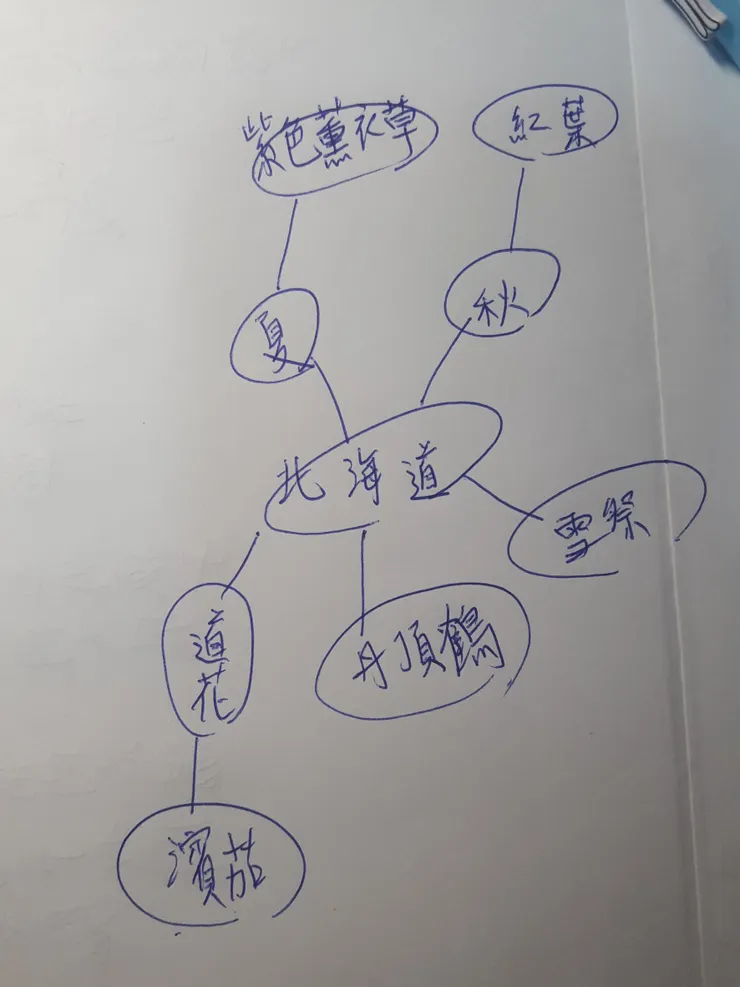 紫色薰衣草
紅葉
夏
秋
北海道
雪祭
道花
丹頂鶴
濱茄